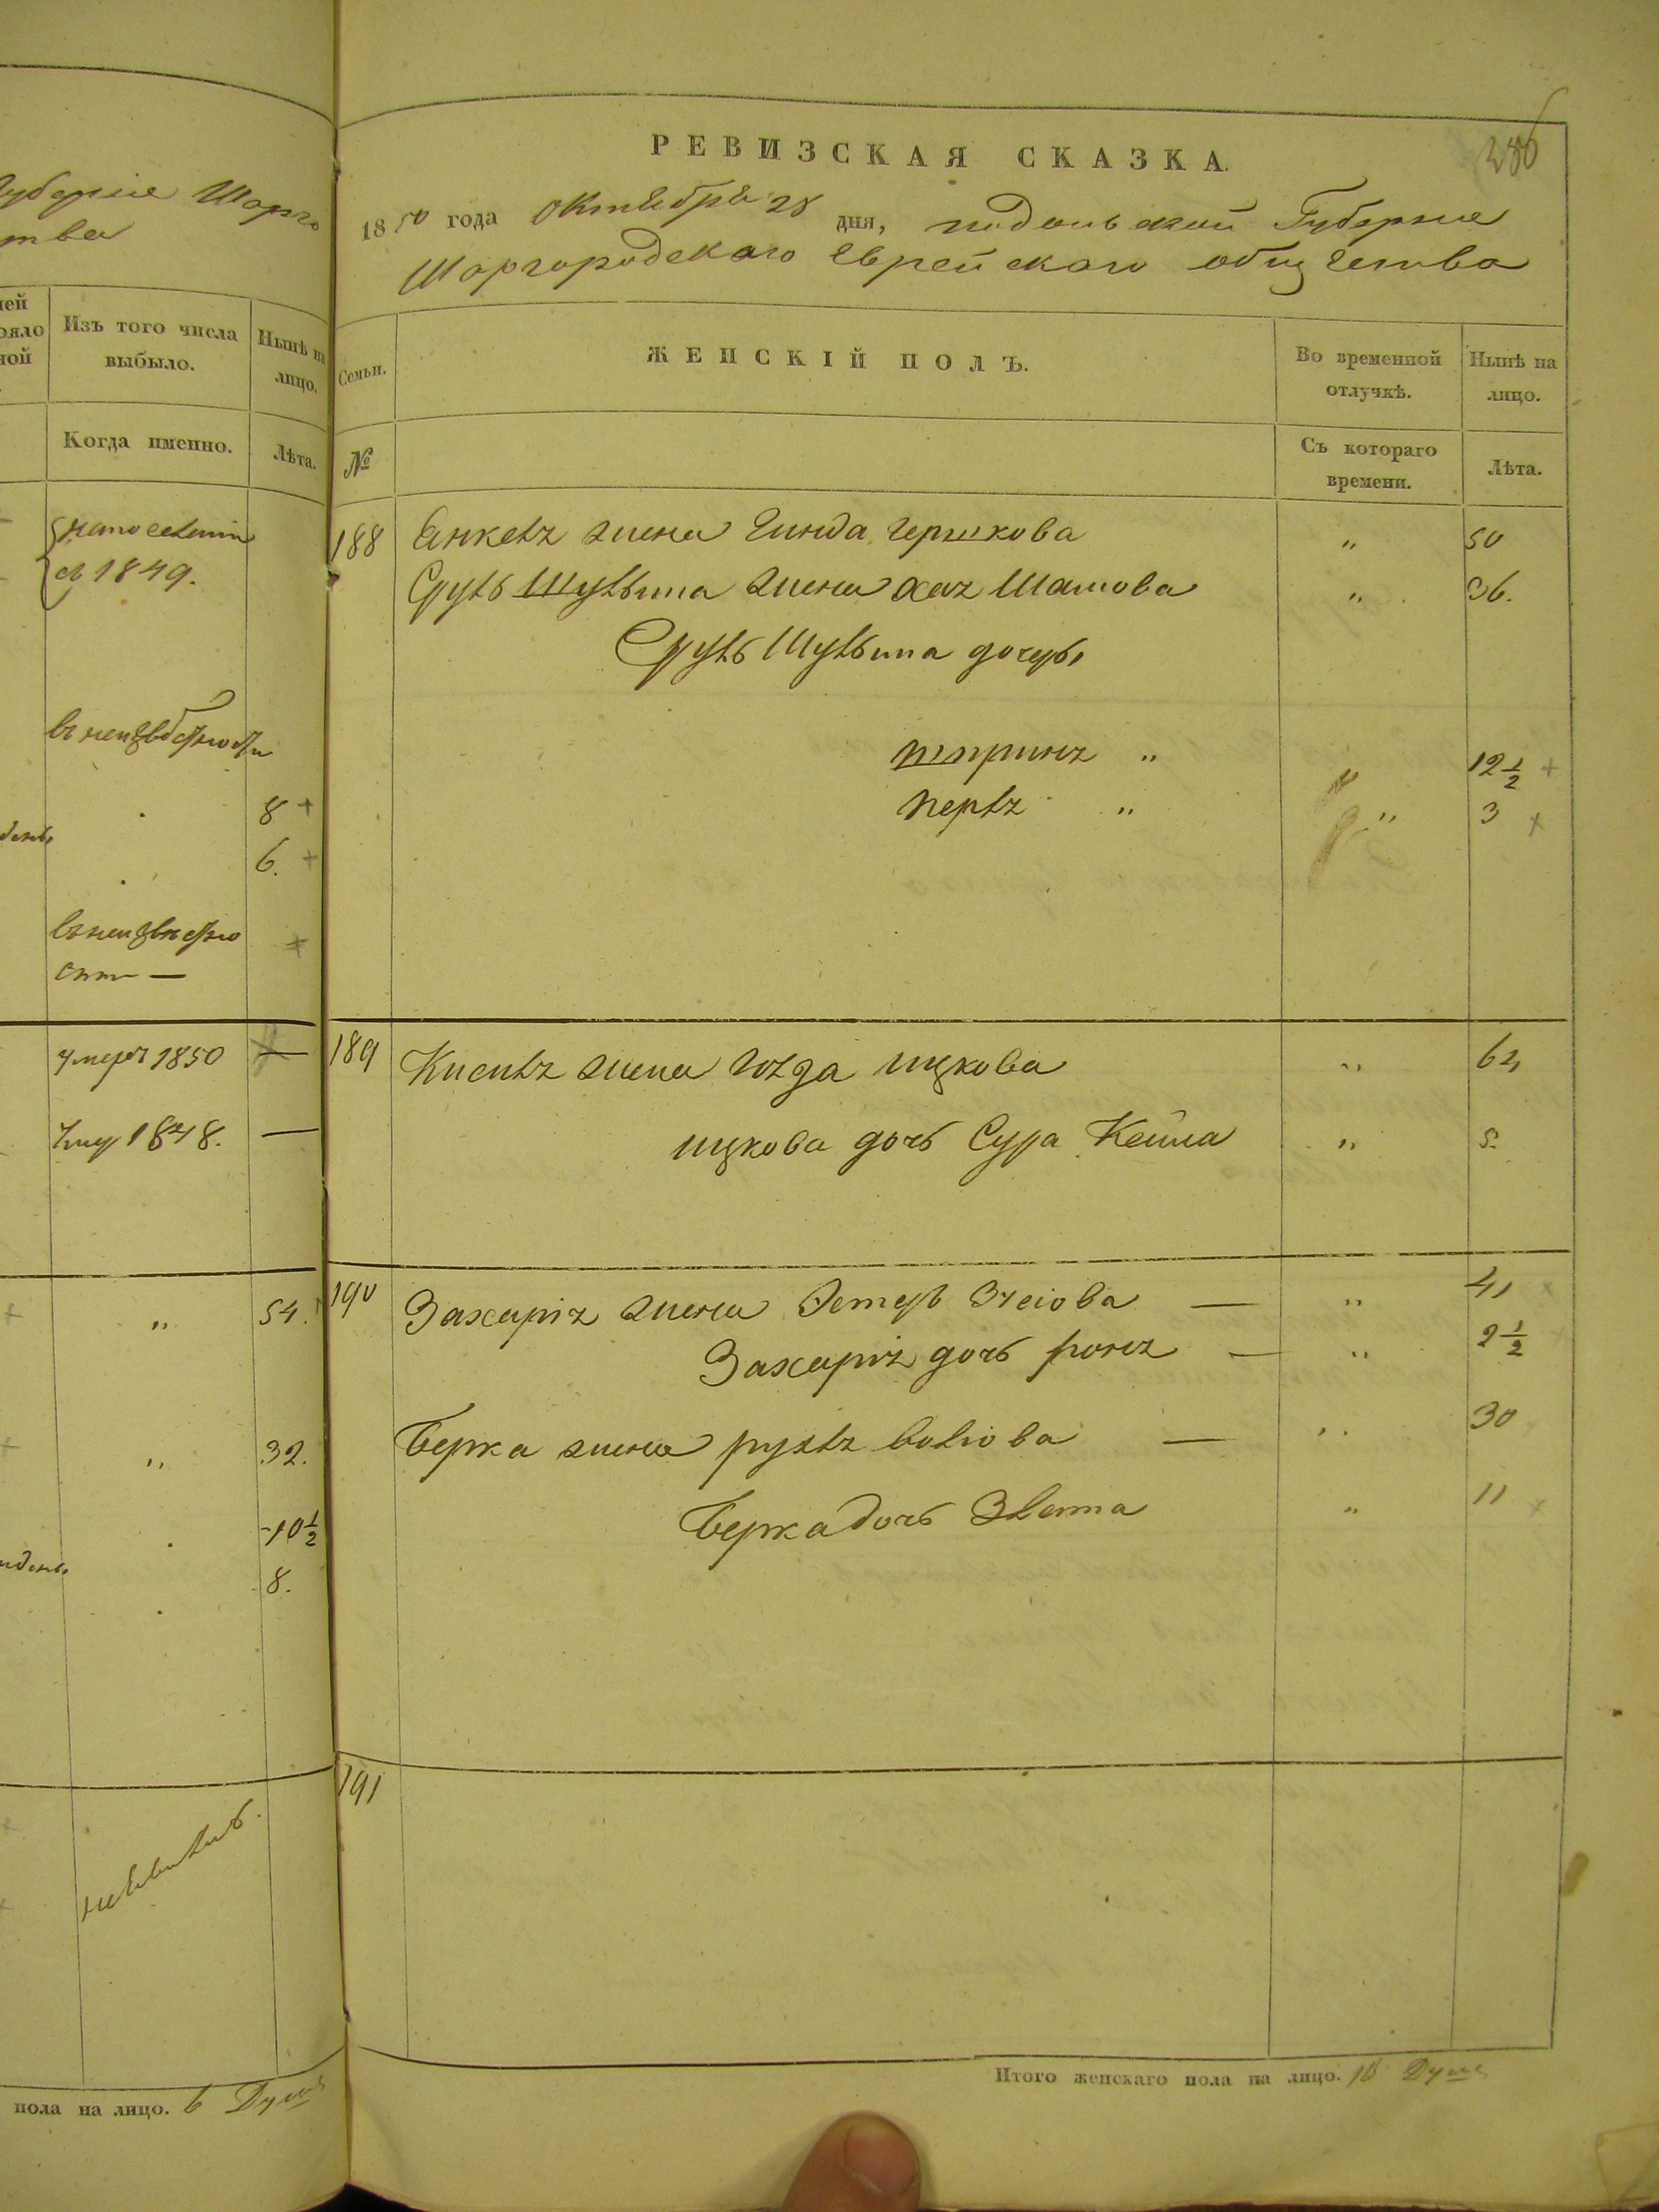 Губерніе Шарго
тва
Изъ того числа
выбыло.
Нынѣ на
лицо.
Когда именно.
Лѣта.
с 1849.
въ неизвѣстности
8
6.
въ неизвѣстно
сти —
умеръ 1850 —
умер 1848. —
„ 54.
„ 32.
10 1/2
8.
пола на лицо. 6 Душъ
286
РЕВИЗСКАЯ СКАЗКА.
1850 года Октября 28 дня, подольской Губерние
Шаргородскаго Еврейскаго общества
Семьи.
ЖЕНСКІЙ ПОЛЪ.
Во временной
отлучкѣ.
Нынѣ на
лицо.
№
Съ котораго
времени.
Лѣта.
188 Янкеля жена Гинда гершкова „ 50
Сруль Шульима жена хая Шамова „ 36.
Сруль Шульима дочеры
шприня „ „ 12 1/2
перля „ „ 3
189 Кисиля жена голда ицкова „
ицкова дочь Сура Кейла „ 5.
190 Захарія жена Эстерь — „ 41
Захарія дочь роня — „ 2 1/2
Берка жена рухля волиова — „ 30
Берка дочь Злата „ 11
191
Итого женскаго пола на лицо. 10 Душъ